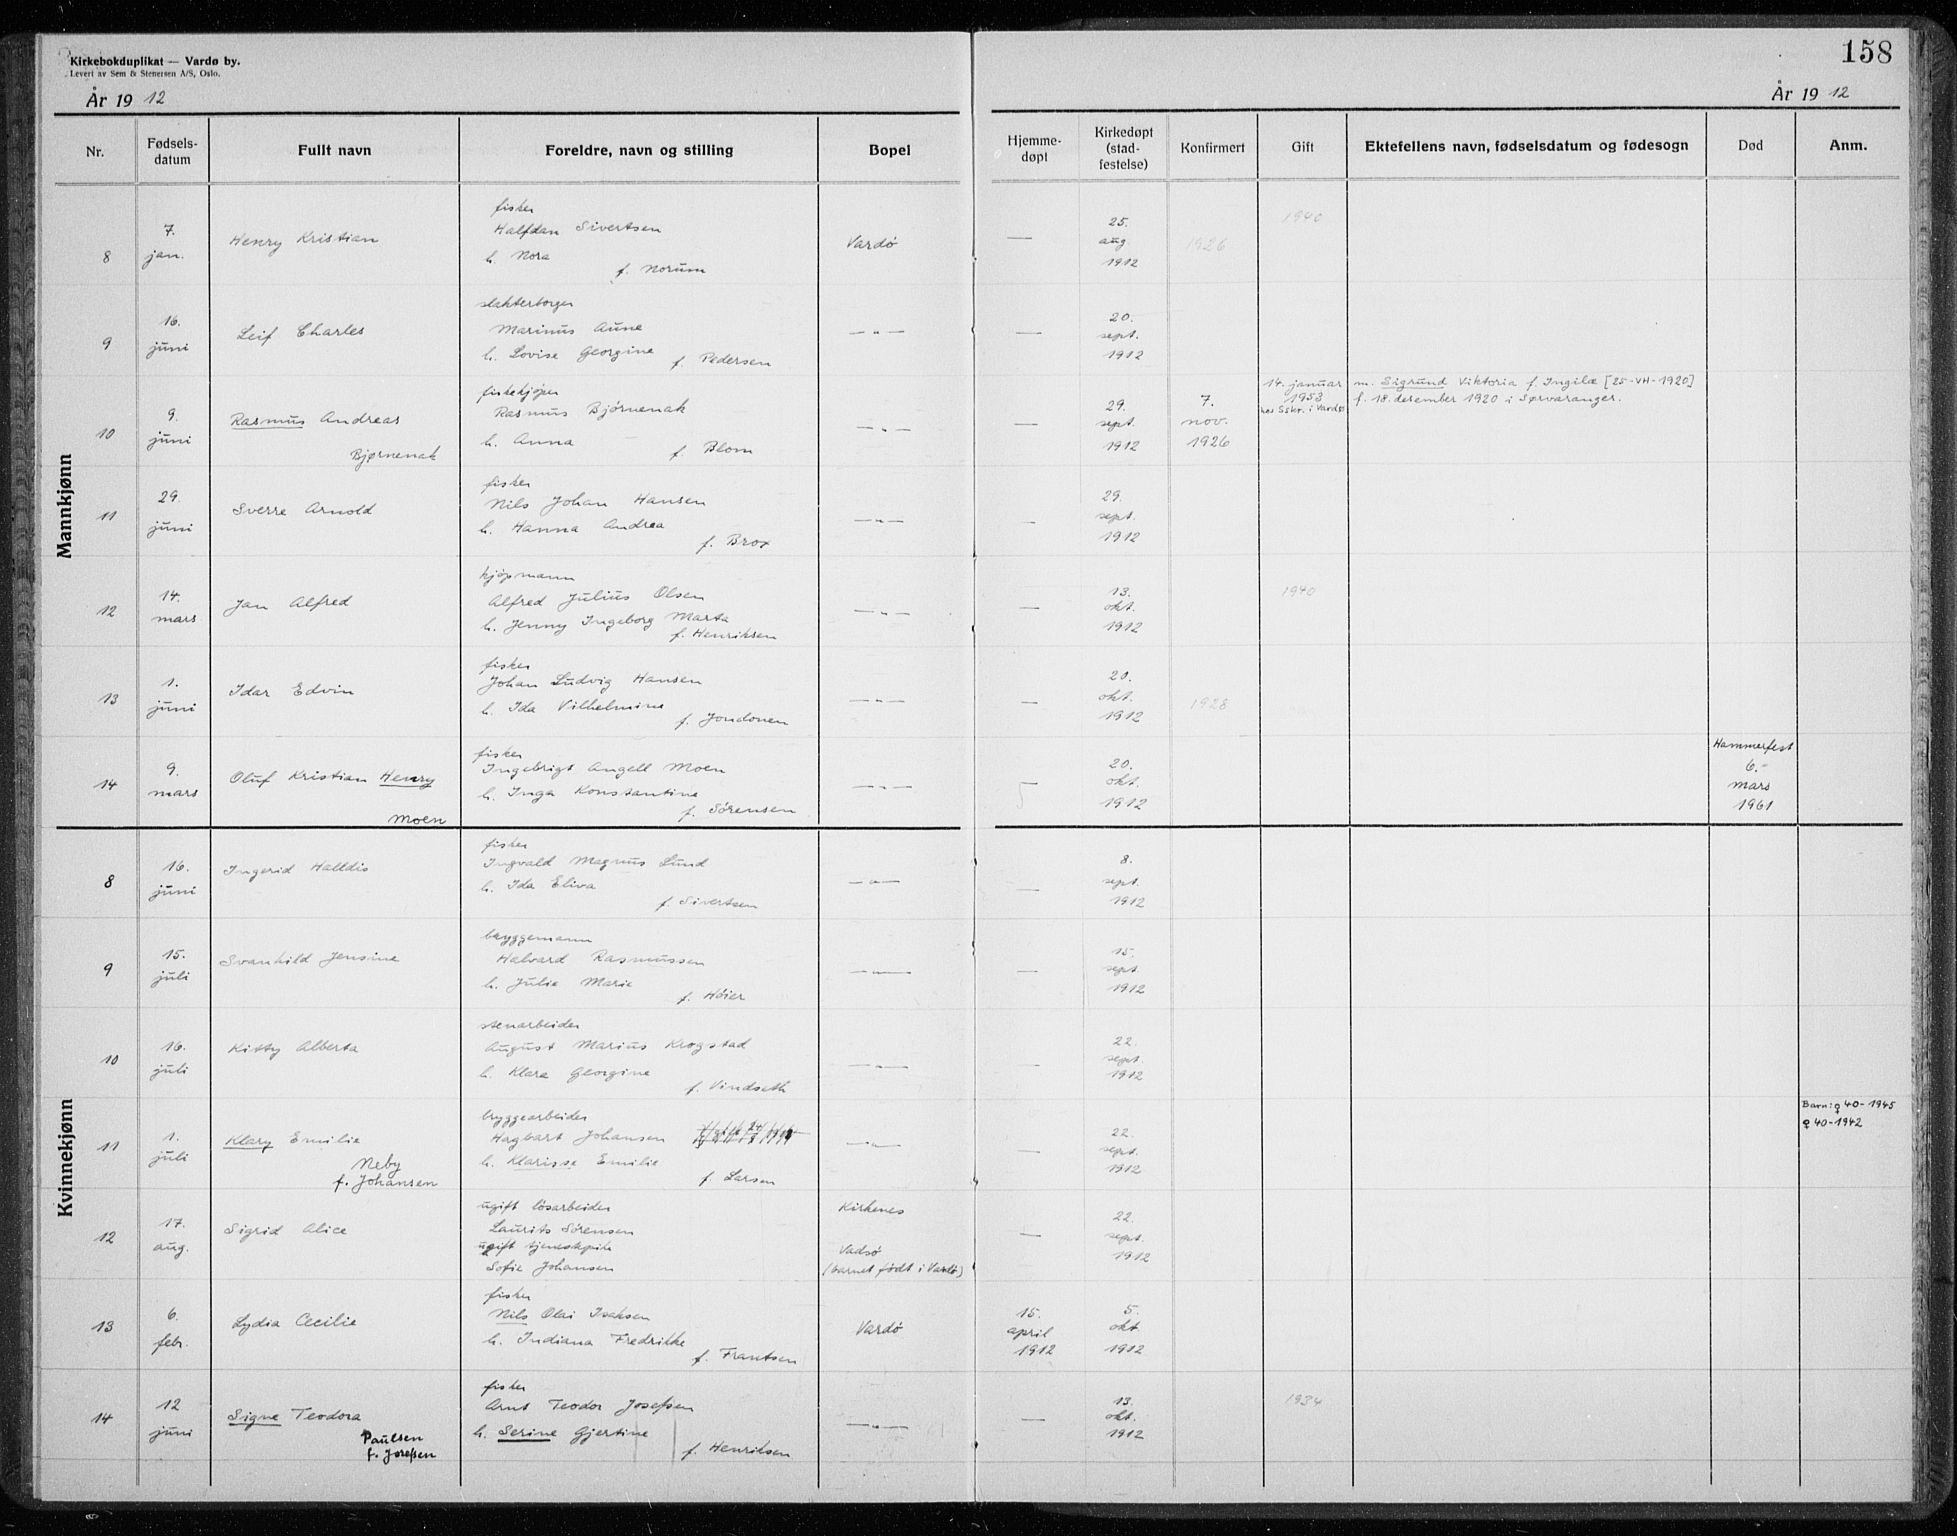 Kirkebokduplikat — Vardø by.
Levert av Sem & Stenersen A/S, Oslo.
158
År 19 12
År 19 12
Nr. Fødsels-datum Fullt navn Foreldre, navn og stilling Bopel Hjemme-døpt Kirkedøpt (stad-festelse) Konfirmert Gift Ektefellens navn, fødselsdatum og fødesogn Død Anm.
Mannkjønn
fisker
7. Halfdan Sivertsen 25. 1940
Henry Kristian Vardö — aug. 1926
8 jan. h. Nora 1912
f. Norum
slakterborger
16. Marinus Aune 20.
9 Leif Charles —"— — sept.
juni h. Lovise Georgine f. Pedersen 1912
fiskekjøper 14. januar m. Sigrund Viktoria f. Ingilæ [25-VII-1920]
9. Rasmus Bjørnenak 29. 7. 1953 f. 18. desember 1920 i Sørvaranger.
res Sskr. i Vardø
10 Rasmus Andreas —"— — sept. nov.
juni h. Anna f. Blom 1912 1926
Bjørnenak
fisker
29. Nils Johan Hansen 29.
11 Sverre Arnold —"— — sept.
juni h. Hanna Andrea 1912
f. Brox
kjøpmann
14. Alfred Julius Olsen 13. 1940
12 Jan Alfred —"— — okt.
mars h. Jenny Ingeborg Marta 1912
f. Henriksen
fisker
1. Johan Ludvig Hansen 20.
13 Idar Edvin —"— — okt. 1928
juni h. Ida Vilhelmine f. Jondonen 1912
fisker Hammerfest
9. Ingebrigt Angell Moen 20. 6.-
14 Oluf Kristian Henry —"— — okt. mars
mars h. Inga Konstantine 1912 1961
Moen f. Sörensen
Kvinnekjønn
fisker
16. Ingvald Magnus Lund 8.
8 Ingerid Halldis —"— — sept.
juni h. Ida Eliva 1912
f. Sivertsen
bryggemann
15. Halvard Rasmussen 15.
9 Svanhild Jensine —"— — sept.
juli h. Julie Marie f. Höier 1912
stenarbeider
16. August Marius Krogstad 22.
10 Kitty Alberta —"— — sept.
juli h. Klara Georgine f. Vindseth 1912
bryggearbeider Barn: ♀ 40-1945
♀ 40-1942
1. Hagbart Johansen 22.
11 Klary Emilie —"— — sept.
juli h. Klarisse Emilie 1912
Neby f. Larsen
f. Johansen
ugift lösarbeider Kirkenes
17. Laurits Sörensen 22.
12 Sigrid Alice — sept.
aug. ugift tjenestepike Vadsö 1912
Sofie Johansen (barnet födt i Vardö)
fisker
6. Nils Olai Isaksen 15. 5.
13 Lydia Cecilie Vardö april okt.
febr. h. Indiana Fredrikke 1912 1912
f. Frantsen
fisker
12 Arnt Teodor Josefsen 13. 1934
14 Signe Teodora —"— — okt.
juni h. Serine Gjertine 1912
Paulsen f. Henriksen
f. Josefsen